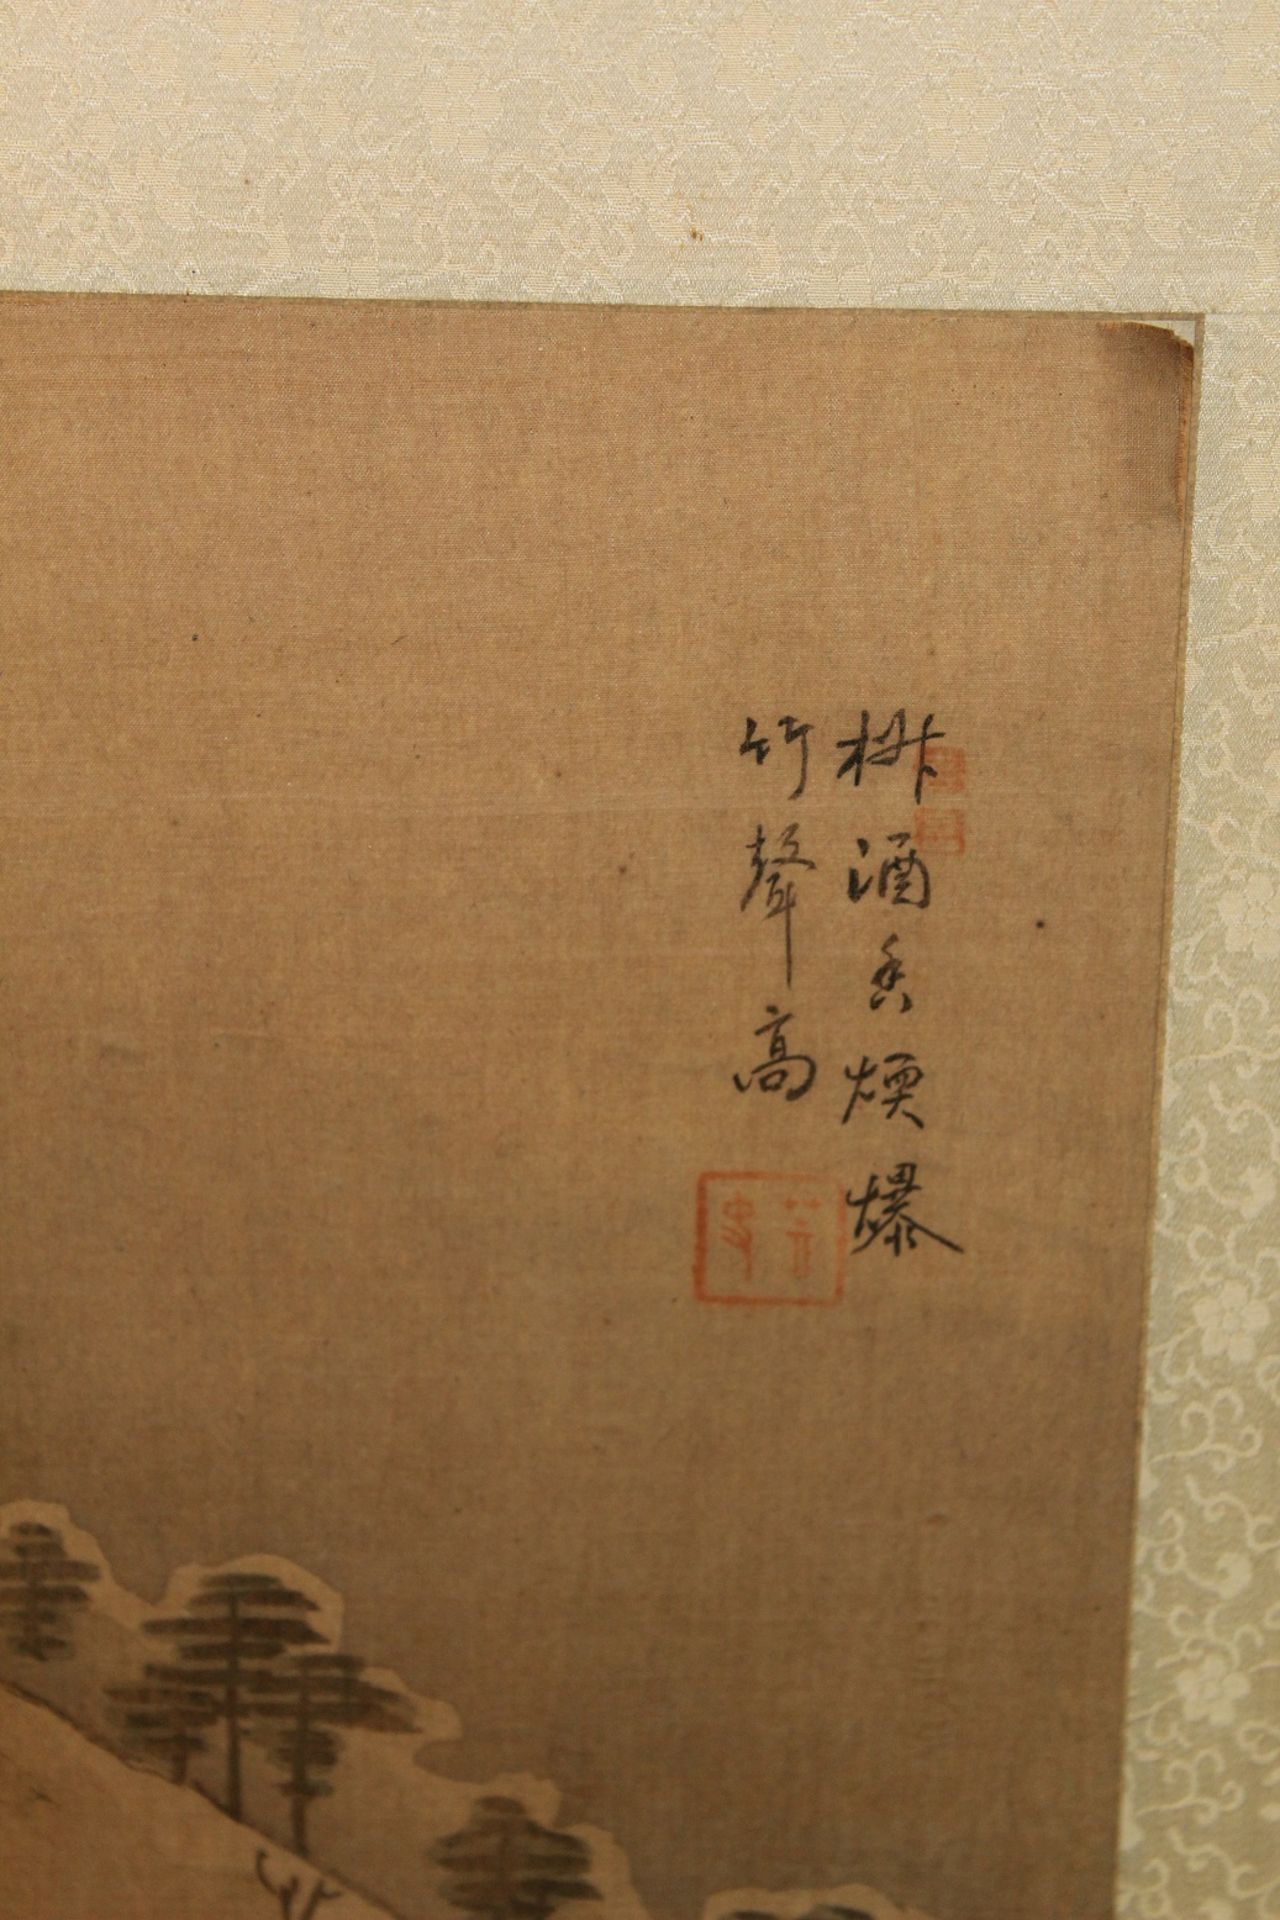 椒酒香煙爆
竹聲高